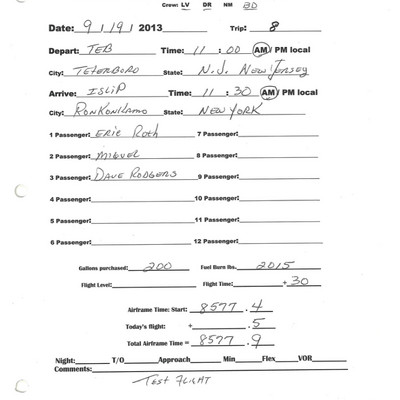 Crew: LV DR NM BD
Date: 9 / 19 / 2013 Trip: 8
Depart: TEB Time: 11 : 00 AM / PM local
City: TETERBORO State: N.J. NEW JERSEY
Arrive: ISLIP Time: 11 : 30 AM / PM local
City: RONKONKAMO State: NEW YORK
1 Passenger: ERIC ROTH 7 Passenger:
2 Passenger: MIGUEL 8 Passenger:
3 Passenger: DAVE RODGERS 9 Passenger:
4 Passenger: 10 Passenger:
5 Passenger: 11 Passenger:
6 Passenger: 12 Passenger:
Gallons purchased: 200 Fuel Burn lbs. 2015
Flight Level: Flight Time: + 30
Airframe Time: Start: 8577 . 4
Today's flight: + . 5
Total Airframe Time = 8577 . 9
Night: T/O Approach Min Flex VOR
Comments:
TEST FLIGHT